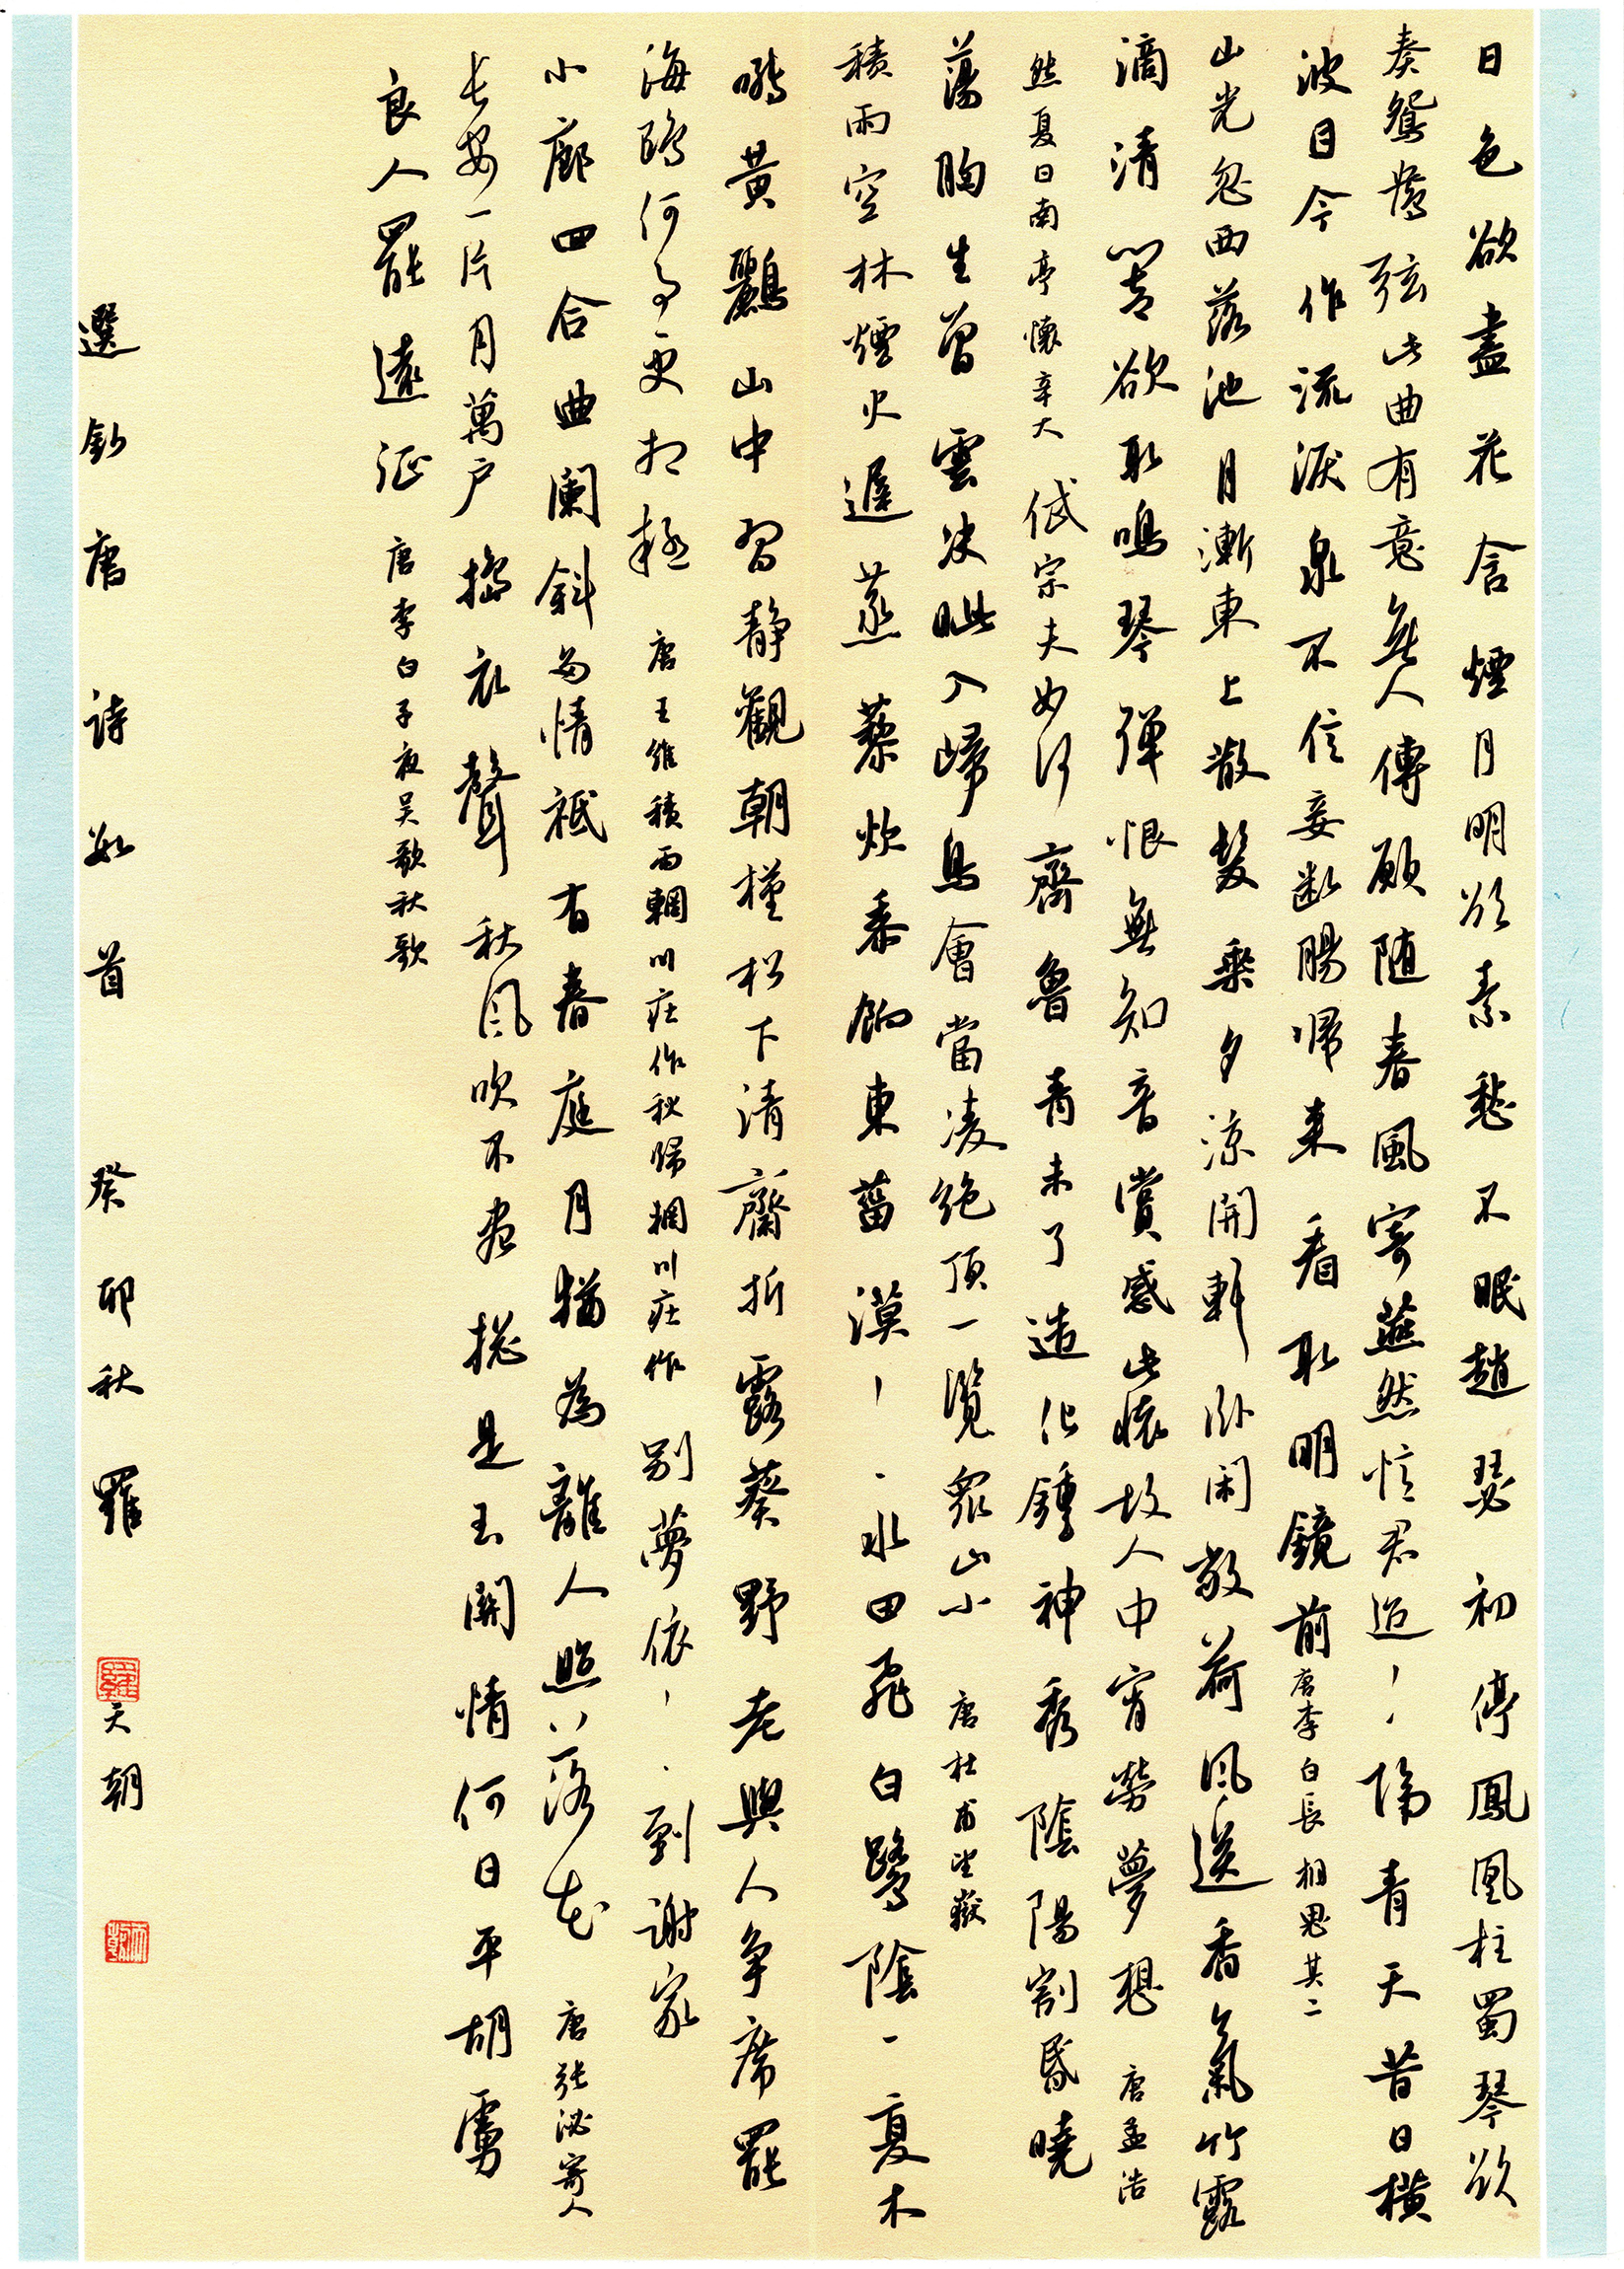 日色欲盡花含煙月明欲素愁不眠趙瑟初停鳳凰柱蜀琴欲
奏鴛鴦弦此曲有意無人傳願随春風寄燕然憶君迢〻隔青天昔日橫
波目今作流淚泉不信妾斷腸歸來看取明鏡前唐李白長相思其二
山光忽西落池月漸東上散髮乘夕涼開軒臥閑敞荷風送香氣竹露
滴清響欲取鳴琴彈恨無知音賞感此懷故人中宵勞夢想唐孟浩
然夏日南亭懷辛大岱宗夫如何齊魯青未了造化鍾神秀陰陽割昏曉
蕩胸生曾雲决眦入歸鳥會當凌絕頂一覽眾山小唐杜甫望嶽
積雨空林煙火遲蒸藜炊黍餉東菑漠〻水田飛白鷺陰〻夏木
囀黃鸝山中習靜觀朝槿松下清齋折露葵野老與人争席罷
海鷗何事更相疑唐王維積雨輞川莊作秋歸輞川莊作别夢依〻到謝家
小廊四合曲闌斜多情祗有春庭月猶為離人照落花唐張泌寄人
長安一片月萬户搗衣聲秋風吹不盡總是玉關情何日平胡虜
良人罷遠征唐李白子夜吳歌秋歌
選鈔唐詩數首癸卯秋羅天朝